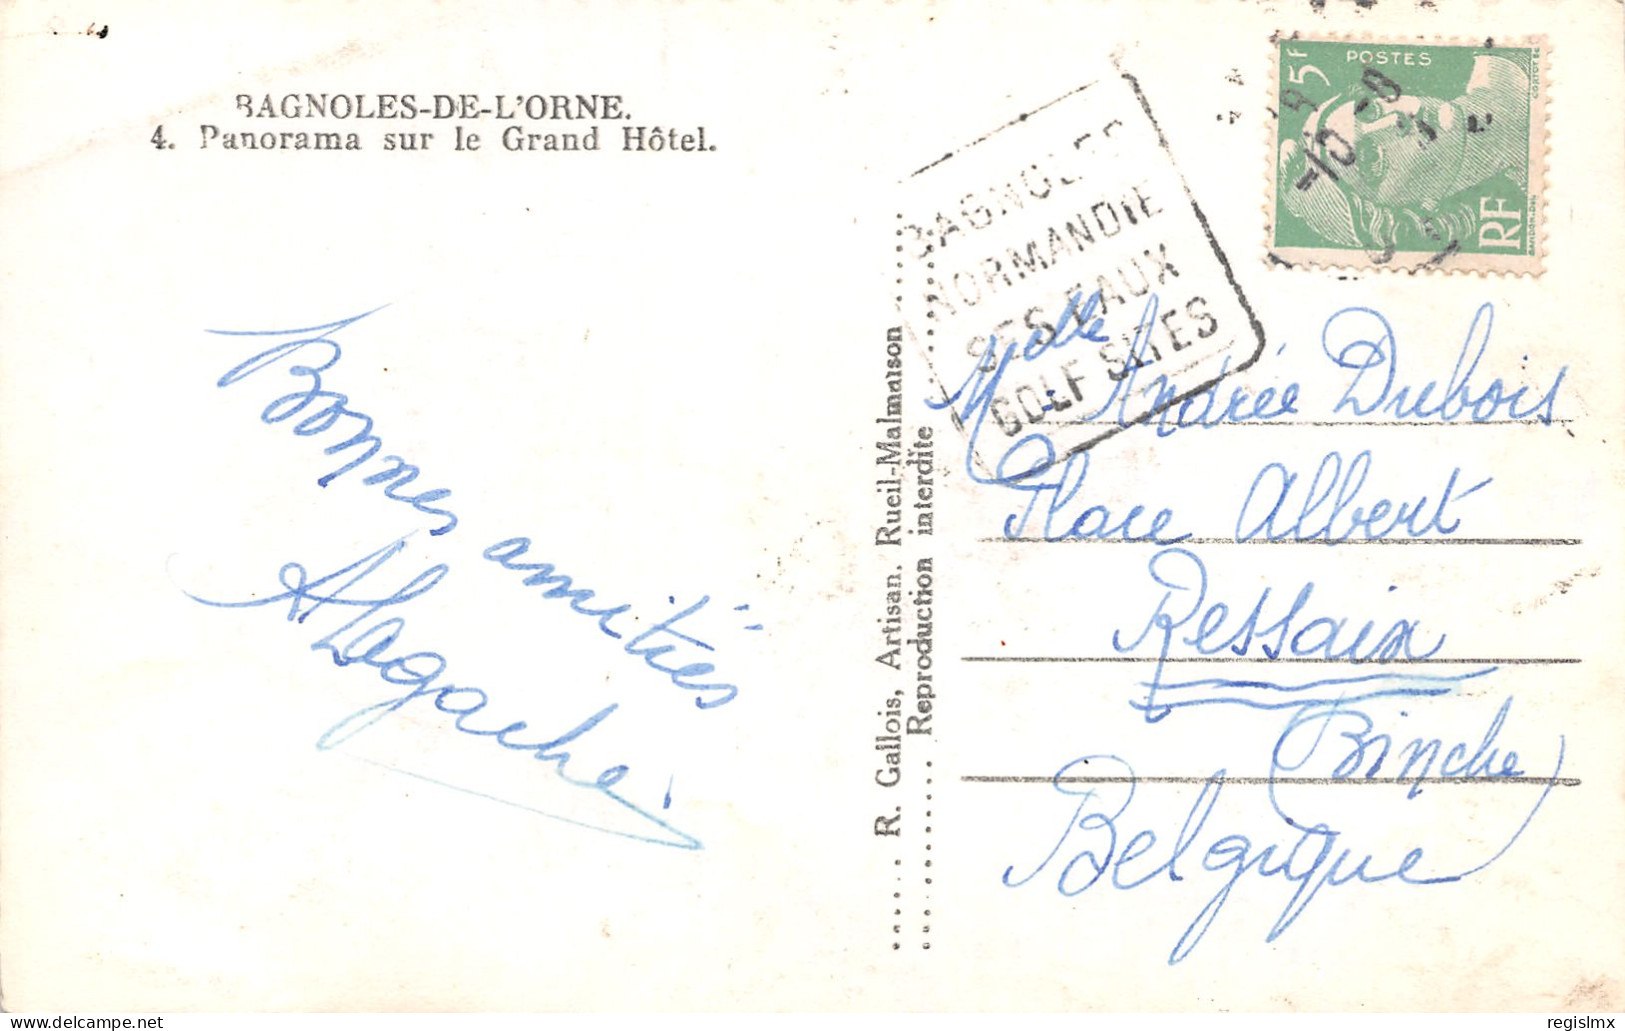 BAGNOLES-DE-L'ORNE.
4. Panorama sur le Grand Hôtel.
Bonnes amitiés
ALagache
R. Gallois, Artisan, Rueil-Malmaison
Reproduction interdite
BAGNOLES
NORMANDIE
SES EAUX
GOLF SITES
5F
POSTES
RF
-10 -8
Mlle Andrée Dubois
Place Albert
Ressaix
(Binche)
Belgique
regislmx